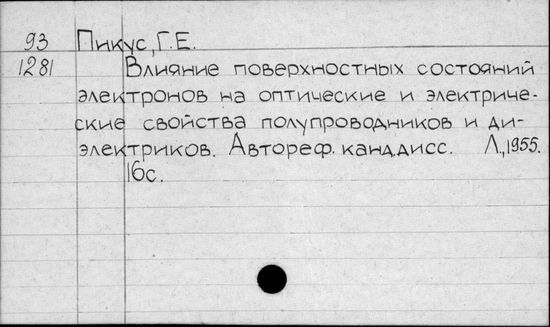 93 Пикус, Г.Е.
1281 Влияние поверхностных состояний
электронов на оптические и электриче-
ские свойства полупроводников и ди-
электриков. Автореф. канд.дисс. Л.,1955.
16с.